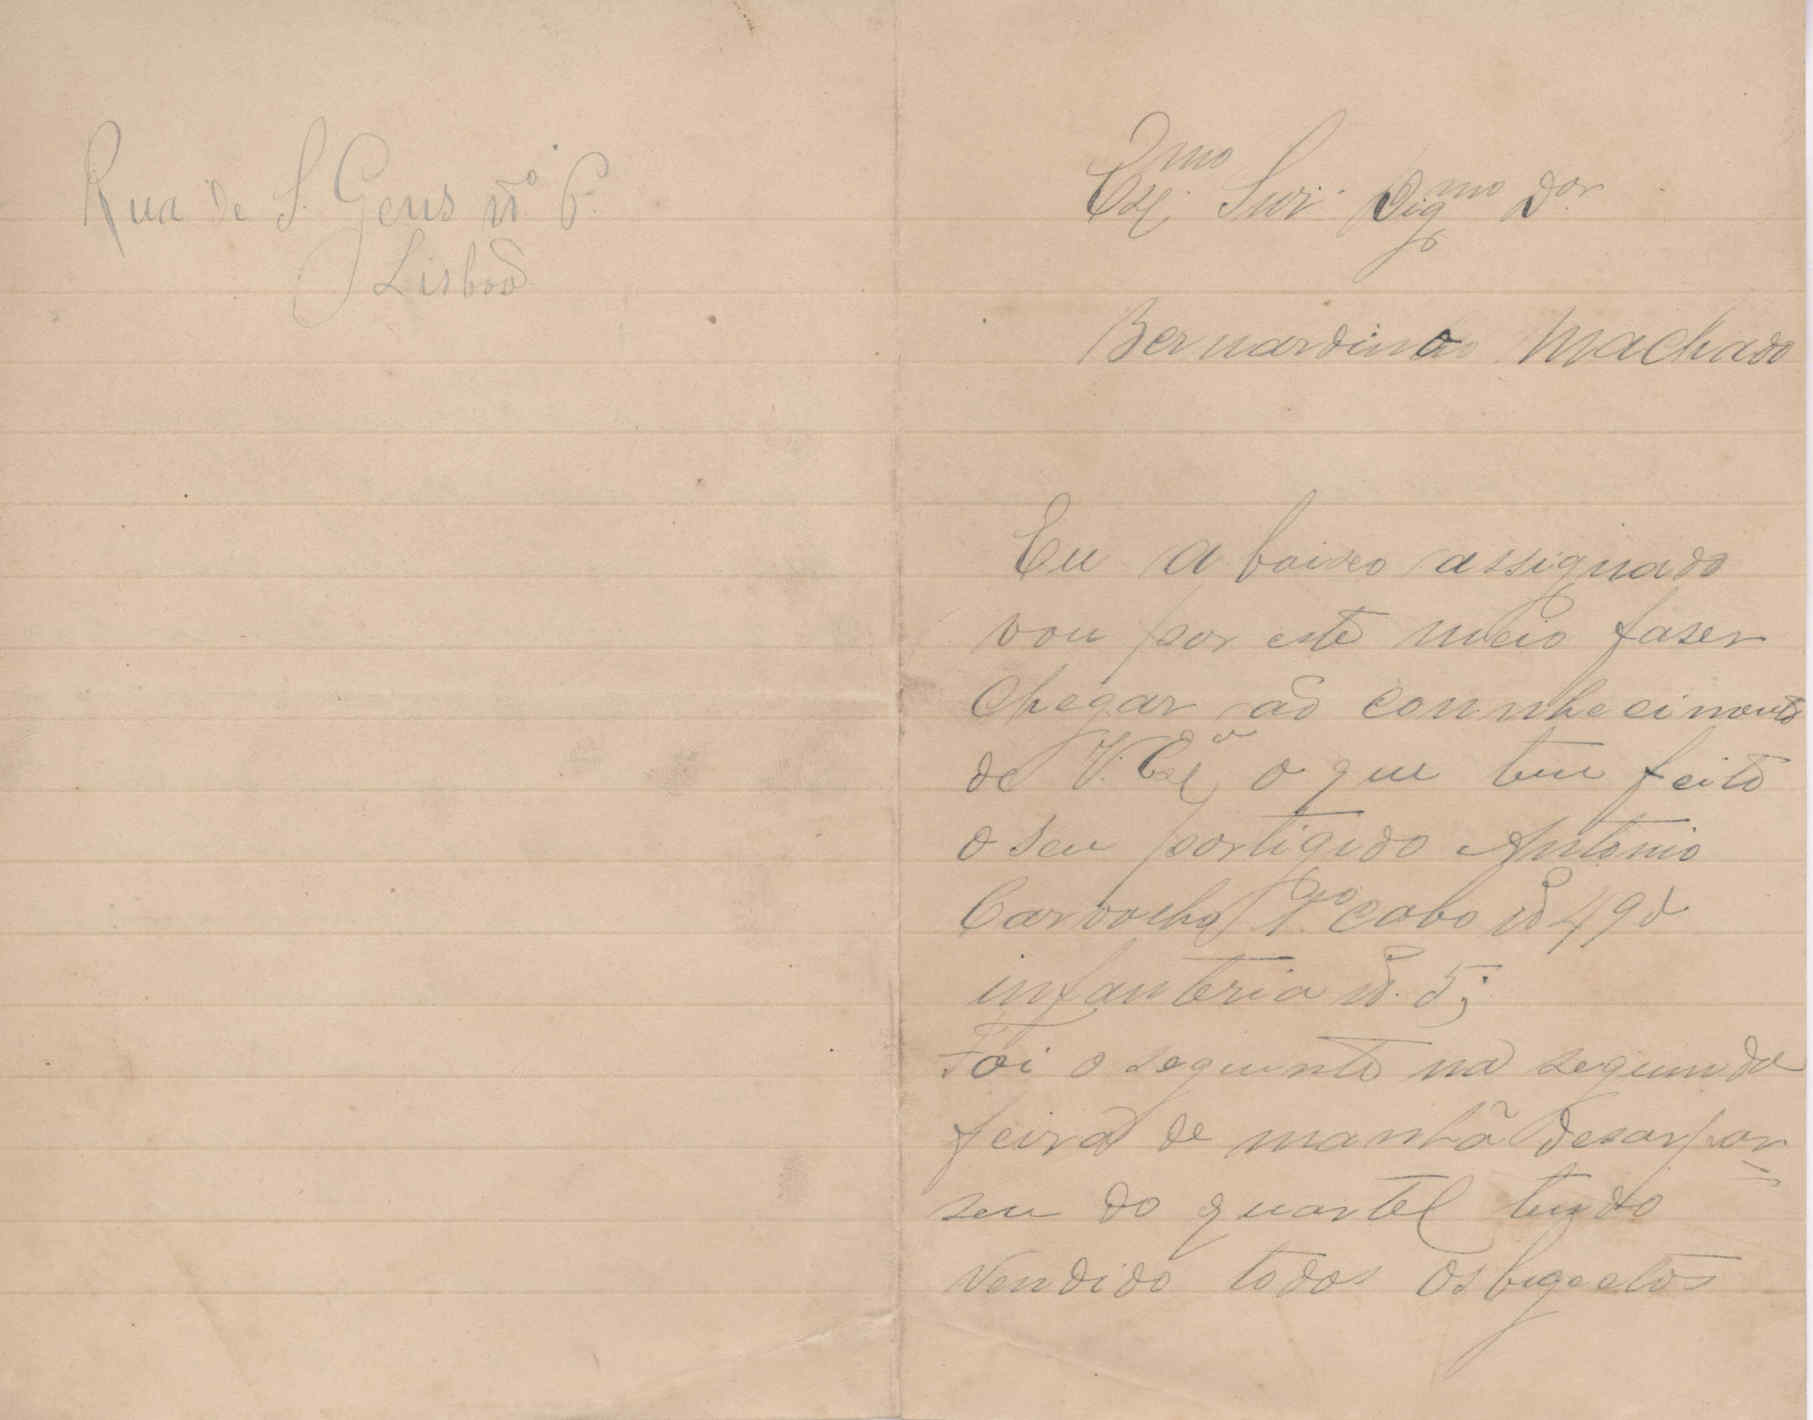 Rua de S. Gens nº 6.
Lisboa
Exmo. Snr. Digmo Dor.
Bernardino Machado
Eu a baixo assignado
vou por este meio faser
chegar ao connhecimento
de V. Exª o que tem feito
o seu portigido Antonio
Carvalho 1º cabo nº 49 d
infanteria nº. 5;
Foi o seguinte na segunda
feira de manhã desarpar=
seu do quartel tendo
vendido todos os bigectos